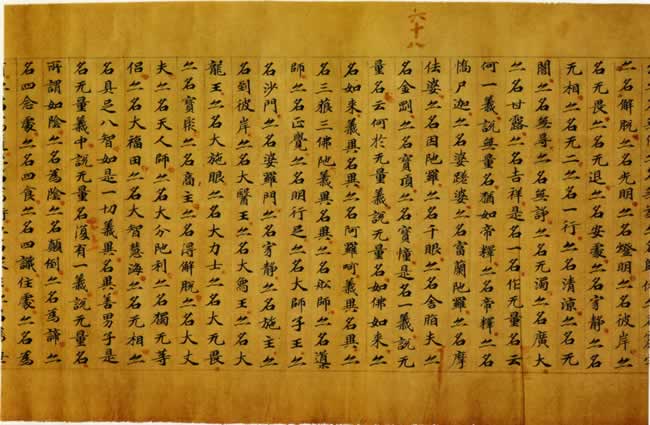 六十八
亦名解脫亦名光明亦名燈明亦名彼岸亦
名无畏亦名无退亦名安處亦名寂靜亦名
无相亦名无二亦名一行亦名清涼亦名无
闇亦名無㝵亦名無諍亦名无濁亦名廣大
亦名甘露亦名吉祥是名一名作无量名云
何一義說無量名猶如帝釋亦名帝釋亦名
憍尸迦亦名婆蹉婆亦名富蘭陁羅亦名摩
佉婆亦名因陁羅亦名千眼亦名舍脂夫亦
名金剛亦名寶頂亦名寶幢是名一義說无
量名云何於无量義說无量名如佛如來亦
名如來義異名異亦名阿羅呵義異名異亦
名三藐三佛陁義異名異亦名舩師亦名導
師亦名正覺亦名明行足亦名大師子王亦
名沙門亦名婆羅門亦名寂靜亦名施主亦
名到彼岸亦名大醫王亦名大象王亦名大
龍王亦名大施眼亦名大力士亦名大无畏
亦名寶聚亦名商主亦名得解脫亦名大丈
夫亦名天人師亦名大分陁利亦名獨无等
侶亦名大福田亦名大智慧海亦名无相亦
名具足八智如是一切義異名異善男子是
名无量義中說无量名復有一義說无量名
所謂如陰亦名為陰亦名顛倒亦名為諦亦
名四念處亦名四食亦名四識住處亦名為